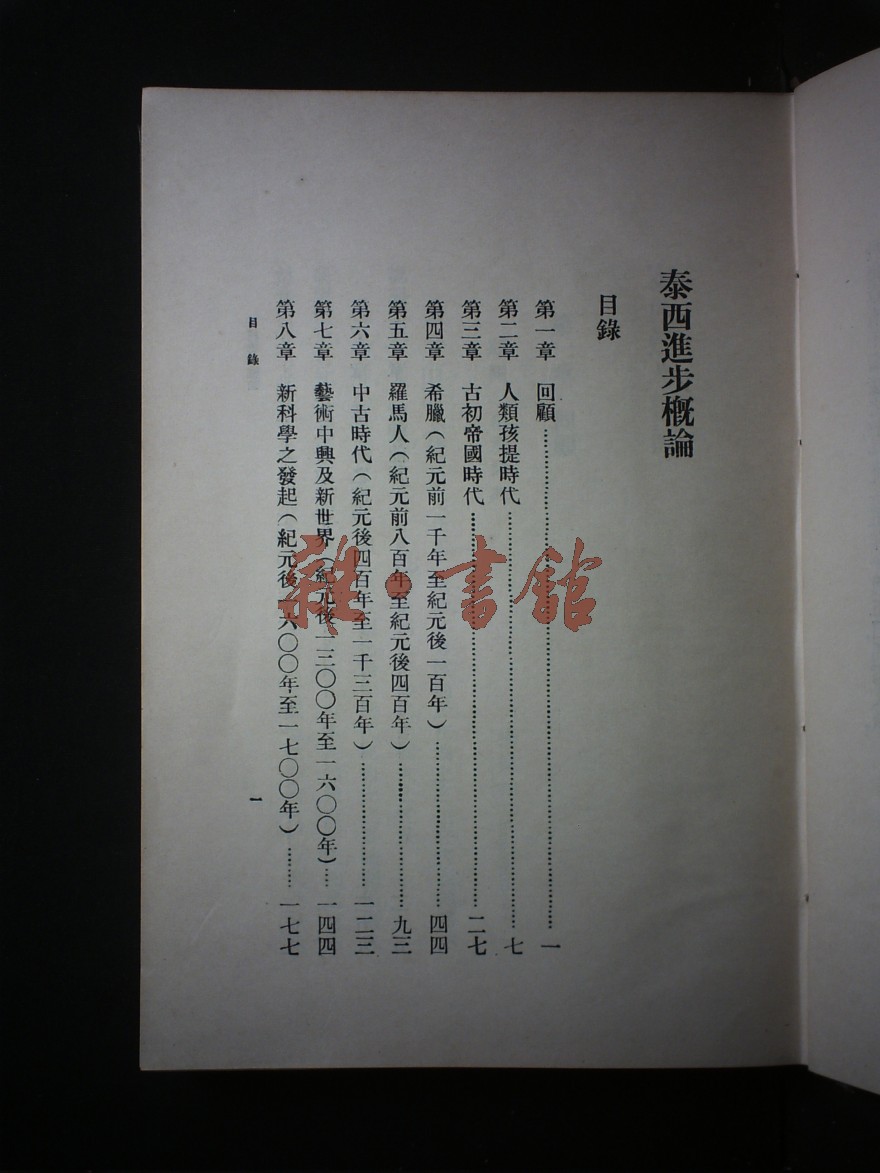 泰西進步概論
目錄
第一章 回顧……一
第二章 人類孩提時代……七
第三章 古初帝國時代……二七
第四章 希臘（紀元前一千年至紀元後一百年）……四四
第五章 羅馬人（紀元前八百年至紀元後四百年）……九三
第六章 中古時代（紀元後四百年至一千三百年）……一二三
第七章 藝術中興及新世界（紀元後一三〇〇年至一六〇〇年）……一四四
第八章 新科學之發起（紀元後一六〇〇年至一七〇〇年）……一七七
目錄
一
雜·書館